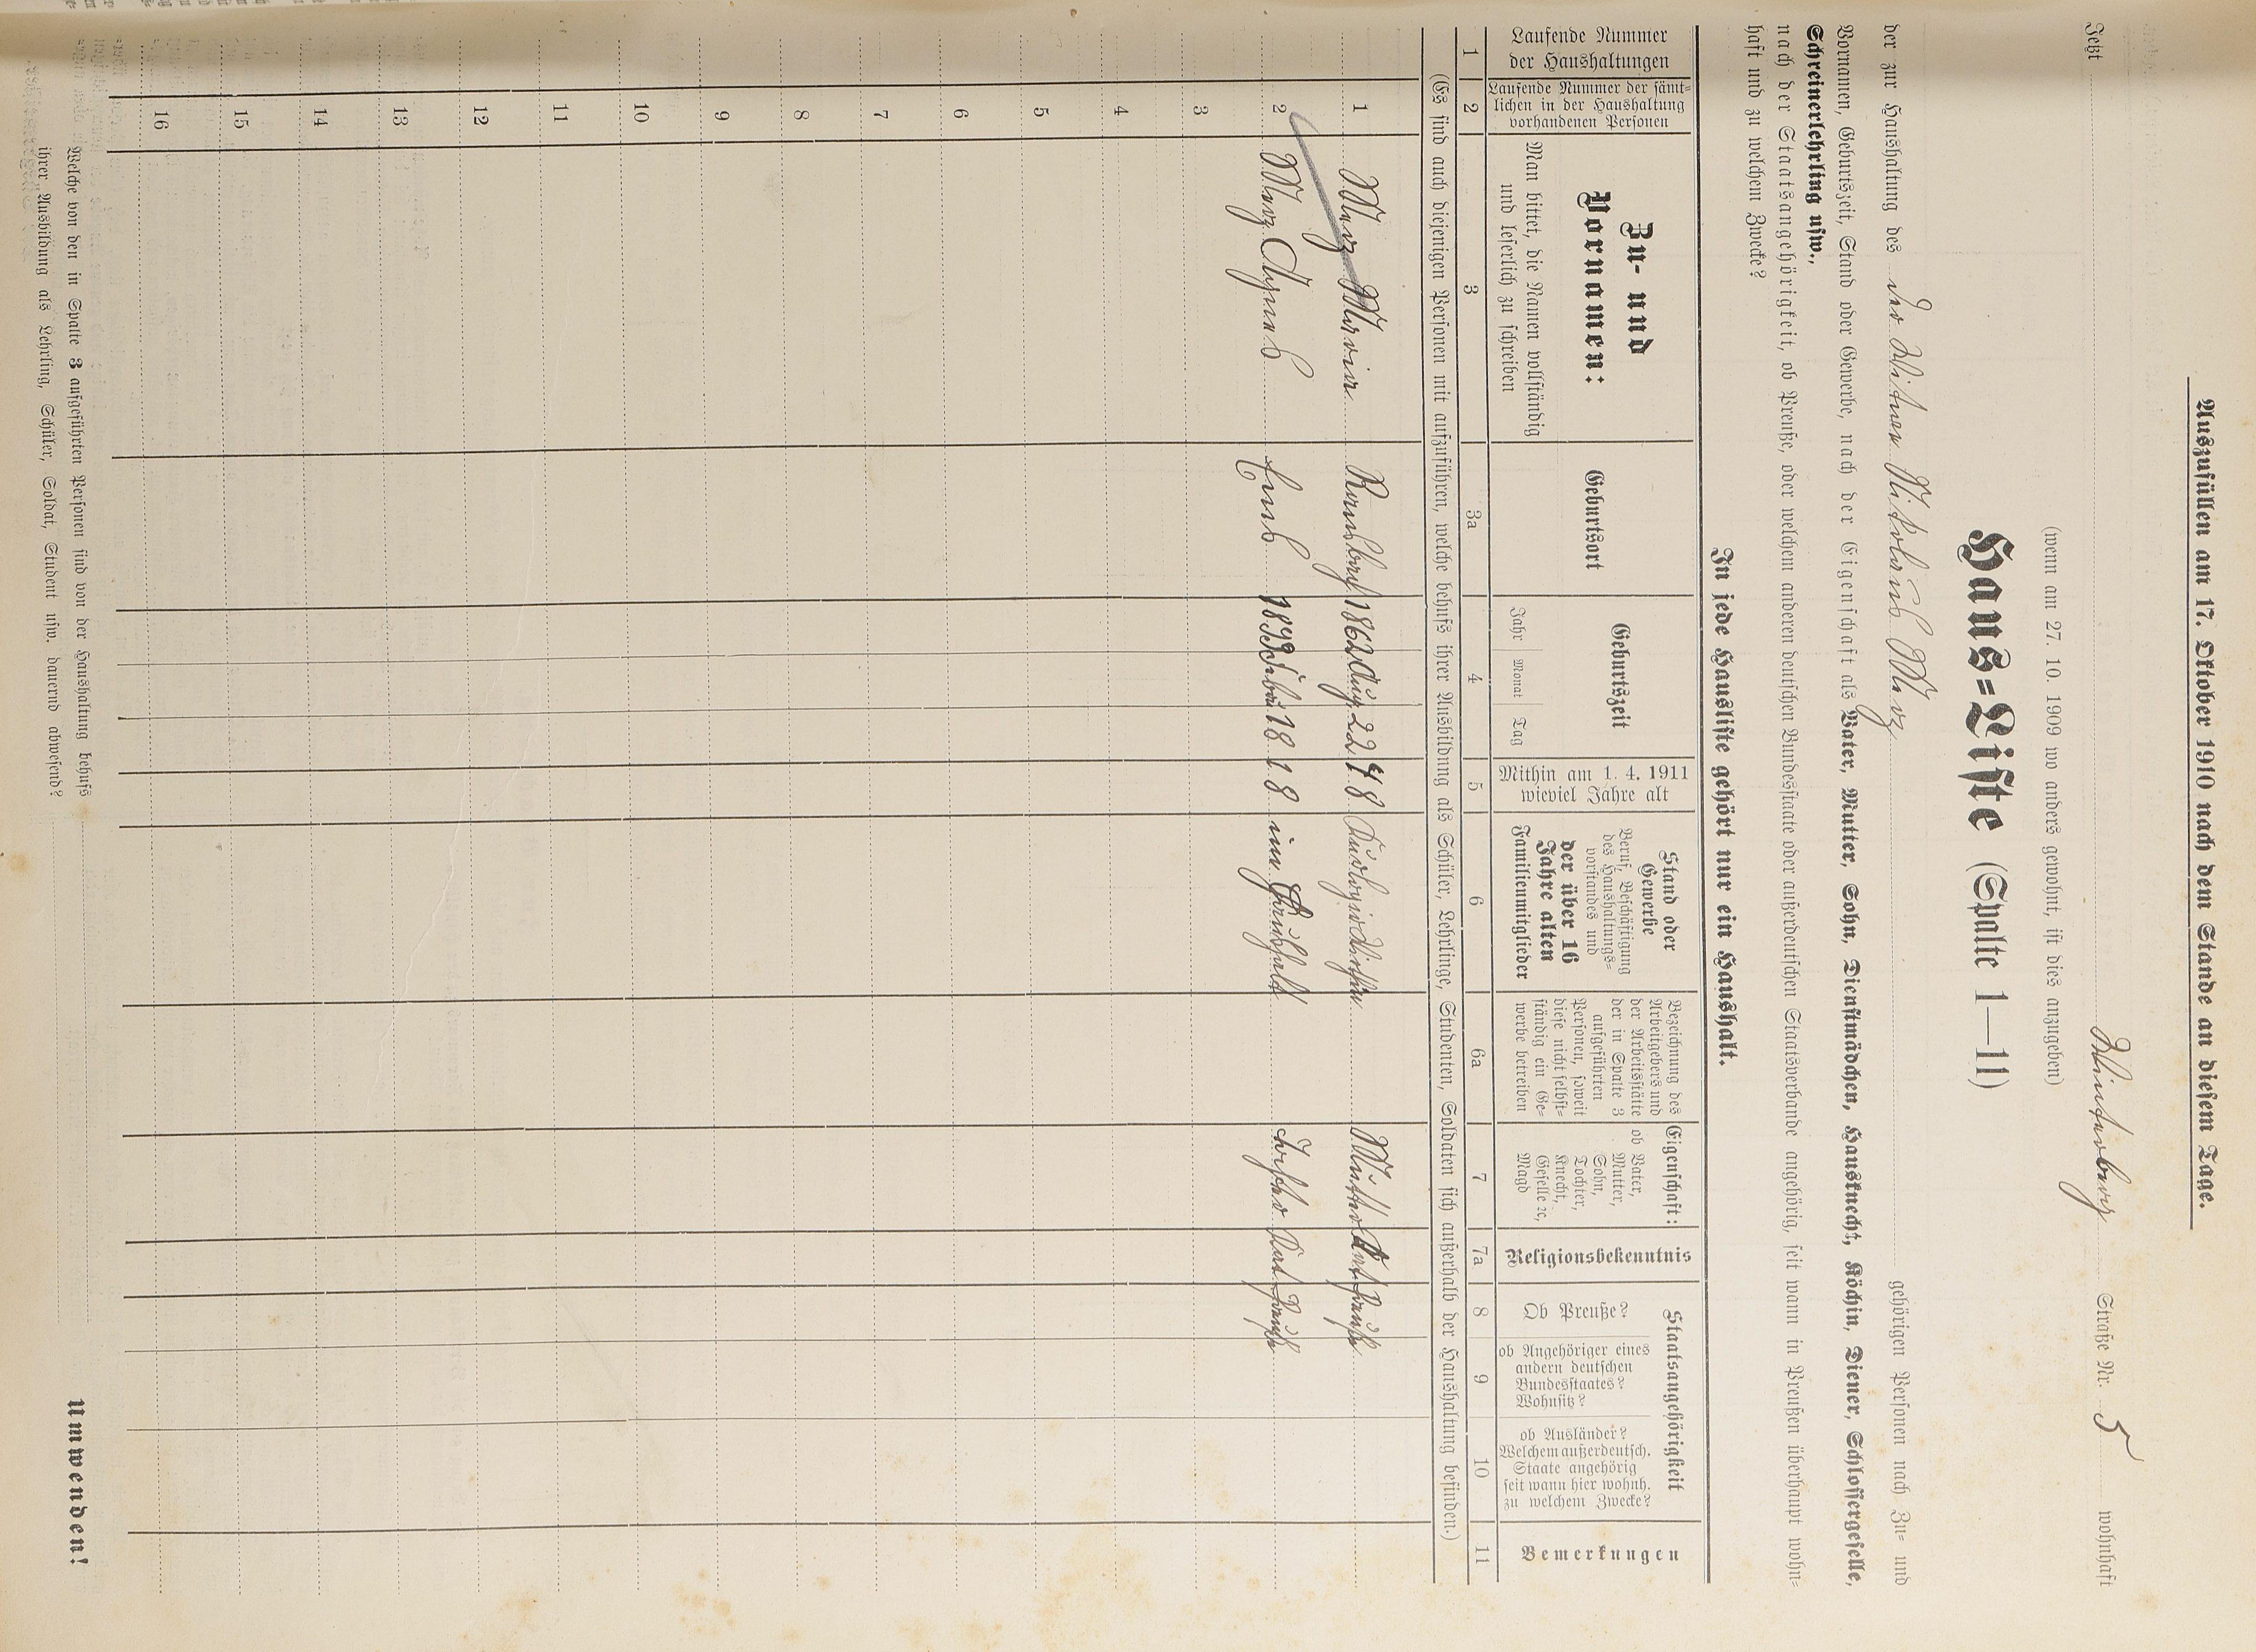 Auszufüllen am 17. Oktober 1910 nach dem Stande an diesem Tage.
Jetzt Winterberg Straße Nr. 5 wohnhaft
(wenn am 27. 10. 1909 wo anders gewohnt, ist dies anzugeben)
Haus=Liste (Spalte 1—11)
der zur Haushaltung des der Witwe Nikolaus May gehörigen Personen nach Zu= und
Vornamen, Geburtszeit, Stand oder Gewerbe, nach der Eigenschaft als Vater, Mutter, Sohn, Dienstmädchen, Hausknecht, Köchin, Diener, Schlossergeselle,
Schreinerlehrling usw.,
nach der Staatsangehörigkeit, ob Preuße, oder welchem anderen deutschen Bundesstaate oder außerdeutschen Staatsverbande angehörig, seit wann in Preußen überhaupt wohn=
haft und zu welchem Zwecke?
In jede Hausliste gehört nur ein Haushalt.
Laufende Nummer
der Haushaltungen
Laufende Nummer der sämt=
lichen in der Haushaltung
vorhandenen Personen
Zu- und
Vornamen:
Man bittet, die Namen vollständig
und leserlich zu schreiben
Geburtsort
Geburtszeit
Jahr Monat Tag
Mithin am 1. 4. 1911
wieviel Jahre alt
Stand oder
Gewerbe
Beruf, Beschäftigung
des Haushaltungs=
vorstandes und
der über 16
Jahre alten
Familienmitglieder
Bezeichnung des
Arbeitgebers und
der Arbeitsstätte
der in Spalte 3
aufgeführten
Personen, soweit
diese nicht selbst=
ständig ein Ge=
werbe betreiben
Eigenschaft:
ob Vater,
Mutter,
Sohn,
Tochter,
Knecht,
Geselle 2c,
Magd
Religionsbekenntnis
Staatsangehörigkeit
Ob Preuße?
ob Angehöriger eines
andern deutschen
Bundesstaates?
Wohnsitz?
ob Ausländer?
Welchem außerdeutsch.
Staate angehörig
seit wann hier wohnh.
zu welchem Zwecke?
Bemerkungen
1 2 3 3a 4 5 6 6a 7 7a 8 9 10 11
(Es sind auch diejenigen Personen mit aufzuführen, welche behufs ihrer Ausbildung als Schüler, Lehrlinge, Studenten, Soldaten sich außerhalb der Haushaltung befinden.)
1 May Maria 1862 Aug. 22 48 Mutter Kat. Preuße
2 May Agnes Ems 18 18 im Haushalt Tochter Kat. Preuße
3
4
5
6
7
8
9
10
11
12
13
14
15
16
Welche von den in Spalte 3 aufgeführten Personen sind von der Haushaltung behufs
ihrer Ausbildung als Lehrling, Schüler, Soldat, Student usw. dauernd abwesend?
Umwenden!